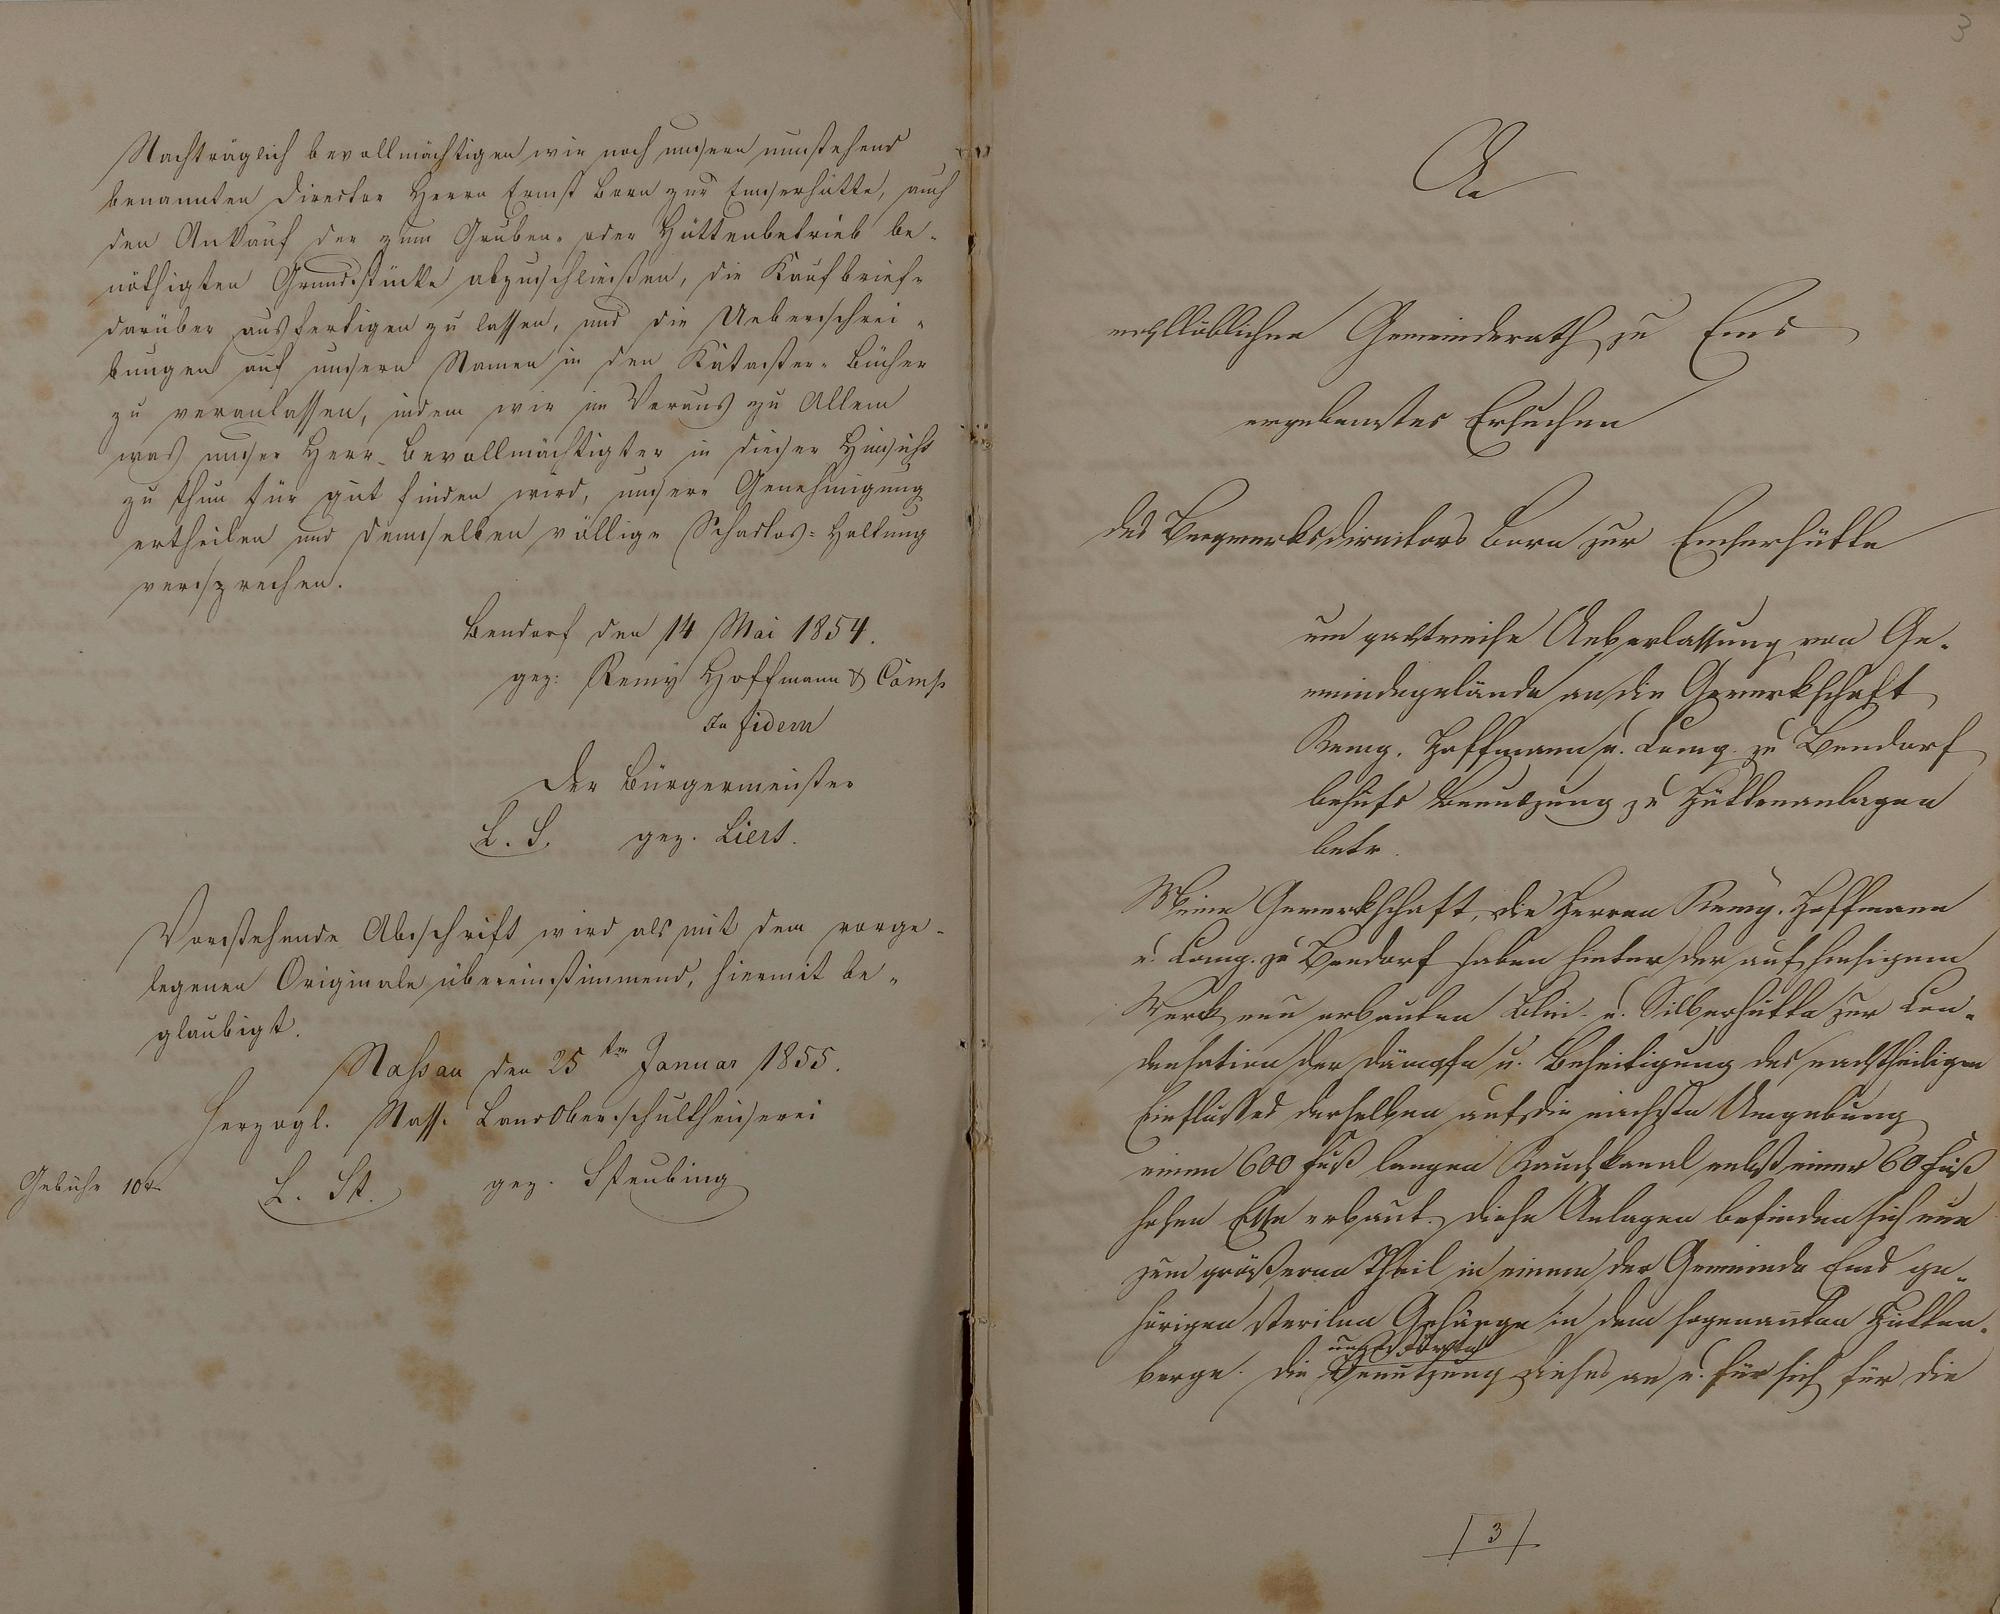 Nachträglich bevollmächtigen wir noch unsern umstehend
benannten Director Herrn Ernst Born zur Emserhütte, auch
den Ankauf der zum Gruben- oder Hüttenbetrieb be-
nöthigten Grundstücke abzuschließen, die Kaufbriefe
darüber ausfertigen zu lassen, und die Ueberschrei-
bungen auf unsern Namen in den Kataster-Bücher
zu veranlassen, indem wir im Voraus zu Allem
was unser Herr Bevollmächtigter in dieser Hinsicht
zu thun für gut finden wird, unsere Genehmigung
ertheilen und demselben völlige Schadlos-Haltung
versprechen.
Bendorf den 14 Mai 1854.
gez: Remy Hoffmann & Comp
In fidem
Der Bürgermeister
L. S. gez. Liers.
Vorstehende Abschrift wird als mit dem vorge-
legenen Originale übereinstimmend, hiermit be-
glaubigt.
Nassau den 25ten Januar 1855.
Herzogl. Nass. LandOberschultheiserei
Gebühr 10 L. St. gez. Steubing
3
An
wohllöblichen Gemeinderath zu Ems
ergebenstes Ersuchen
des Bergwerksdirectors Born zur Emserhütte
um pachtweise Ueberlassung von Ge-
meindegelände an die Gewerkschaft
Remy, Hoffmann u. Comp. zu Bendorf
behufs Benutzung zu Hüttenanlagen
betr.
Meine Gewerkschaft, die Herren Remy, Hoffmann
u. Comp. zu Bendorf haben hinter der auf hiesigem
Werk neu erbauten Blei- u. Silberhütte zur Con-
densation der Dämpfe u. Beseitigung des nachtheiligen
Einflusses derselben auf die nächste Umgebung
einen 600 Fuß langen Rauchkanal nebst einer 60 Fuß
hohen Esse erbaut. Diese Anlagen befinden sich nun
zum größeren Theil in einem der Gemeinde Ems ge-
hörigen sterilen Gehänge in dem sogenannten Hütten-
berge. Die Benutzung dieses an u. für sich für die
3